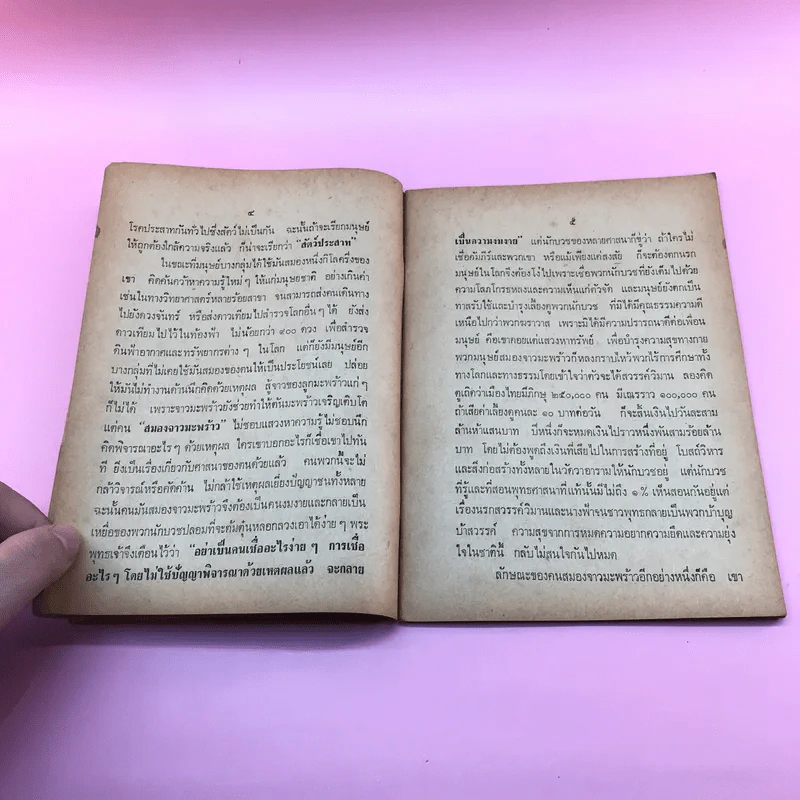 ๔
โรคประสาทกันทั่วไปซึ่งสัตว์ไม่เป็นกัน ฉะนั้นถ้าจะเรียกมนุษย์
ให้ถูกต้องใกล้ความจริงแล้ว ก็น่าจะเรียกว่า "สัตว์ประสาท"
ในขณะที่มนุษย์บางกลุ่มได้ใช้มันสมองหนึ่งกิโลครึ่งของ
เขา คิดค้นคว้าหาความรู้ใหม่ๆ ให้แก่มนุษยชาติ อย่างเกินค่า
เช่นในทางวิทยาศาสตร์หลายร้อยสาขา จนสามารถส่งคนเดินทาง
ไปยังดวงจันทร์ หรือส่งดาวเทียมไปสำรวจโลกอื่นๆ ได้ ยังส่ง
ดาวเทียมไปไว้ในท้องฟ้า ไม่น้อยกว่า ๙๐๐ ดวง เพื่อสำรวจ
ดินฟ้าอากาศและทรัพยากรต่างๆ ในโลก แต่ก็ยังมีมนุษย์อีก
บางกลุ่มที่ไม่เคยใช้มันสมองของตนให้เป็นประโยชน์เลย ปล่อย
ให้มันไม่ทำงานด้านนึกคิดด้วยเหตุผล สู้จาวของลูกมะพร้าวแก่ๆ
ก็ไม่ได้ เพราะจาวมะพร้าวยังช่วยทำให้ต้นมะพร้าวเจริญเติบโต
แต่คน "สมองจาวมะพร้าว" ไม่ชอบแสวงหาความรู้ ไม่ชอบนึก
คิดพิจารณาอะไรๆ ด้วยเหตุผล ใครเขาบอกอะไรก็เชื่อเขาไปทัน
ที ยิ่งเป็นเรื่องเกี่ยวกับศาสนาของตนด้วยแล้ว คนพวกนี้จะไม่
กล้าวิจารณ์หรือคัดค้าน ไม่กล้าใช้เหตุผลเยี่ยงปัญญาชนทั้งหลาย
ฉะนั้นคนมันสมองจาวมะพร้าวจึงต้องเป็นคนงมงายและกลายเป็น
เหยื่อของพวกนักบวชปลอมที่จะต้มตุ๋นหลอกลวงเอาได้ง่ายๆ พระ
พุทธเจ้าจึงเตือนไว้ว่า "อย่าเป็นคนเชื่ออะไรง่ายๆ การเชื่อ
อะไรๆ โดยไม่ใช้ปัญญาพิจารณาด้วยเหตุผลแล้ว จะกลาย
๕
เป็นความงมงาย" แต่นักบวชของหลายศาสนาก็ขู่ว่า ถ้าใครไม่
เชื่อคัมภีร์และพวกเขา หรือแม้เพียงแค่สงสัย ก็จะต้องตกนรก
มนุษย์ในโลกจึงต้องโง่ไปเพราะเชื่อพวกนักบวชที่ยังเต็มไปด้วย
ความโลภโกรธหลงและความเห็นแก่ตัวจัด และมนุษย์ยังตกเป็น
ทาสรับใช้และบำรุงเลี้ยงดูพวกนักบวช ที่มิได้มีคุณธรรมความดี
เหนือไปกว่าพวกฆราวาส เพราะมิได้มีความปรารถนาดีต่อเพื่อน
มนุษย์ คือเขาคอยแต่แสวงหาทรัพย์ เพื่อบำรุงความสุขทางกาย
พวกมนุษย์สมองจาวมะพร้าวก็หลงกราบไหว้พวกไร้การศึกษาทั้ง
ทางโลกและทางธรรมโดยเข้าใจว่าตัวจะได้สวรรค์วิมาน ลองคิด
ดูเถิดว่าเมืองไทยมีภิกษุ ๒๕๐,๐๐๐ คน มีเณรราว ๑๐๐,๐๐๐ คน
ถ้าเสียค่าเลี้ยงดูคนละ ๑๐ บาทต่อวัน ก็จะสิ้นเงินไปวันละสาม
ล้านห้าแสนบาท ปีหนึ่งก็จะหมดเงินไปราวหนึ่งพันสามร้อยล้าน
บาท โดยไม่ต้องพูดถึงเงินที่เสียไปในการสร้างที่อยู่ โบสถ์วิหาร
และสิ่งก่อสร้างทั้งหลายในวัดวาอารามให้นักบวชอยู่ แต่นักบวช
ที่รู้และที่สอนพุทธศาสนาที่แท้นั้นมีไม่ถึง ๑% เห็นสอนกันอยู่แต่
เรื่องนรกสวรรค์วิมานและนางฟ้าจนชาวพุทธกลายเป็นพวกบ้าบุญ
บ้าสวรรค์ ความสุขจากการหมดความอยากความยึดและความยุ่ง
ใจในชาตินี้ กลับไม่สนใจกันไปหมด
ลักษณะของคนสมองจาวมะพร้าวอีกอย่างหนึ่งก็คือ เขา